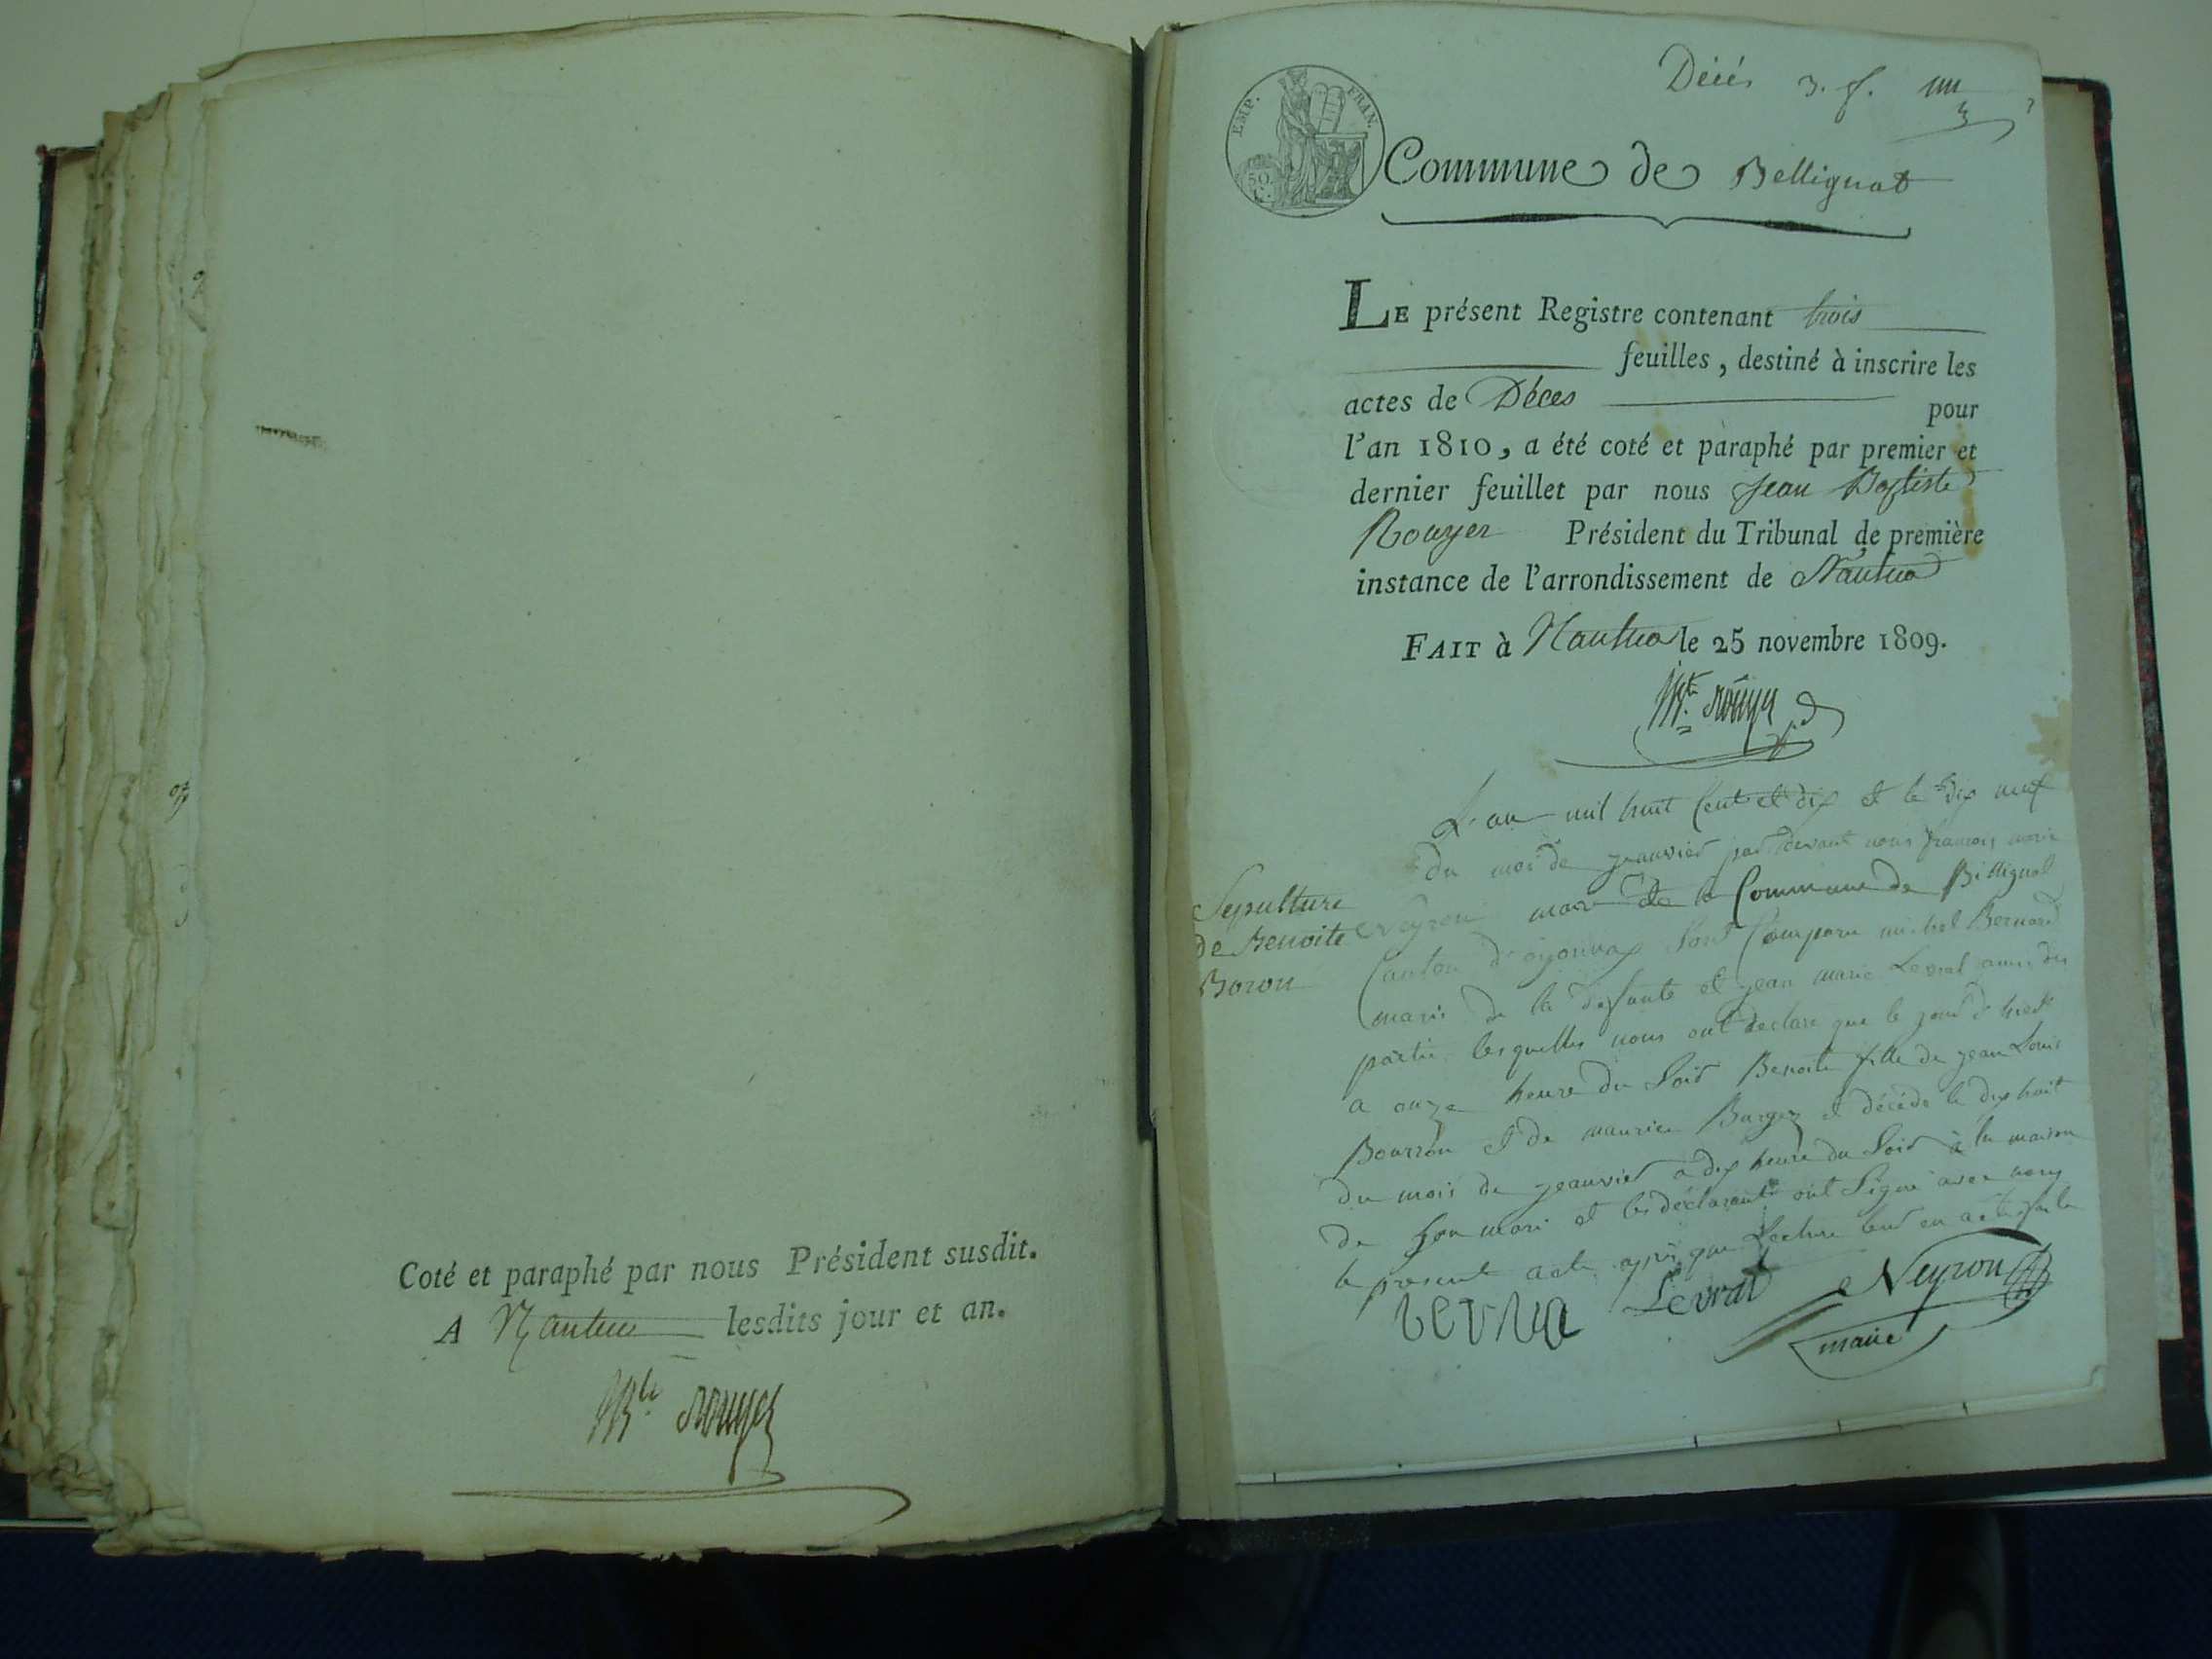 Coté et paraphé par nous Président susdit.
A Nantua lesdits jour et an.
Bte rouyer
Décés 3. f.
EMP. FRAN.
50 C.
Commune de Bellignat
LE présent Registre contenant trois
feuilles, destiné à inscrire les
actes de Déces pour
l'an 1810, a été coté et paraphé par premier et
dernier feuillet par nous Jean Baptiste
Rouyer Président du Tribunal de première
instance de l'arrondissement de Nantua
FAIT à Nantua le 25 novembre 1809.
Bte rouyer
Sepulture
de Benoite
Boron
L'an mil huit Cent et dix et le dix neuf
du mois de jeanvier par devant nous francois marie
Neyron maire de la Commune de Bellignat
Canton d'oyonnax Sont Comparu michel Bernard
maris de la defunte et jean marie Levrat amis des
partie lesquelles nous ont declare que le jour d'hier
a onze heure du Soir Benoite fille de jean Louis
Bourron et de maurice Burgez et décédé le dix huit
du mois de jeanvier a dix heure du Soir à la maison
de Son mari et les déclarants ont Signé avec nous
le present acte après que Lecture leur en a été faite
Levrat Neyron
maire